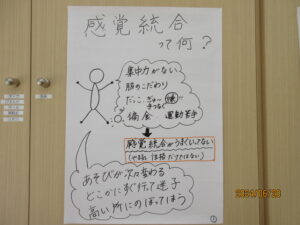 感覚統合
って何？
集中力がない
服のこだわり
だっこ ギュー 嫌
手つなぐ
偏食 運動苦手
感覚統合がうまくいってない
(やる気、性格だけではない)
あそびが次々変わる
どこかにすぐ行って迷子
高い所にのぼってしまう
①